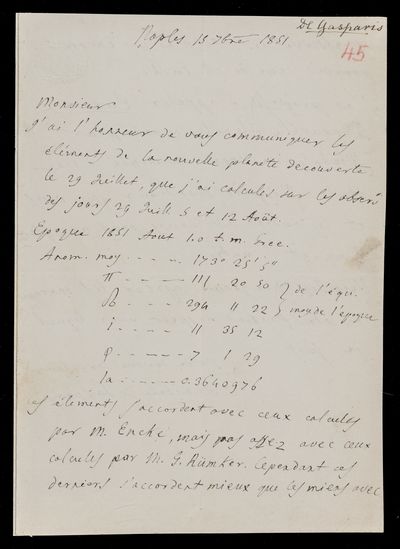 De Gasparis
45
Naples 15 7bre 1851
Monsieur
J'ai l'honneur de vous communiquer les
éléments de la nouvelle planete decouverte
le 29 Juillet, que j'ai calculés sur les observ
des jours 29 Juill. 5 et 12 Août.
Epoque 1851 Aout 1.0 t. m. Gree.
Anom. moy ---- 173° 25' 5"
π ---- 111 20 50 } de l'équi.
☊ ---- 294 11 22 } moy de l'époque
i ---- 11 35 12
φ ---- 7 1 29
la ---- 0.3640976
es éléments s'accordent avec ceux calculés
par M. Encke, mais pas assez avec ceux
calculés par M. G. Rümker. Cependant ces
derniers s'accordent mieux que les miens avec